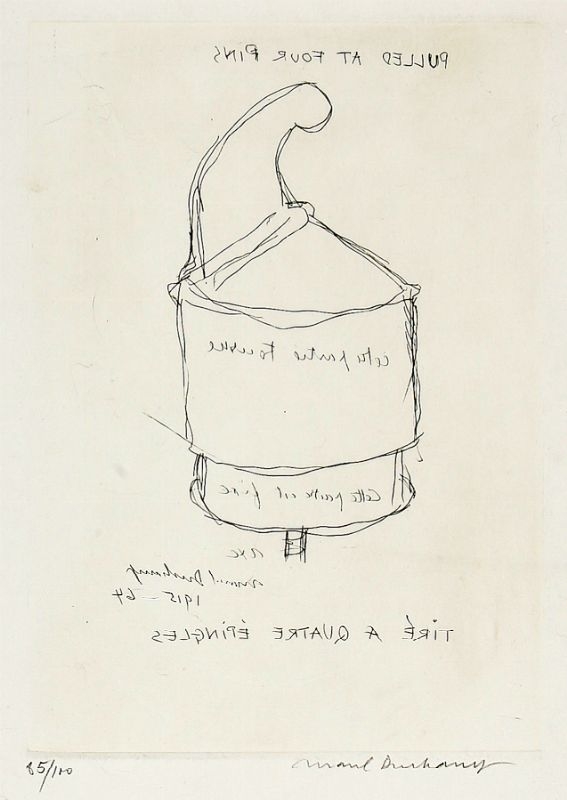 PULLED AT FOUR PINS
cette partie tourne
Cette partie est fixe
axe
Marcel Duchamp
1915-64
TIRÉ A QUATRE ÉPINGLES
85/100
Marcel Duchamp